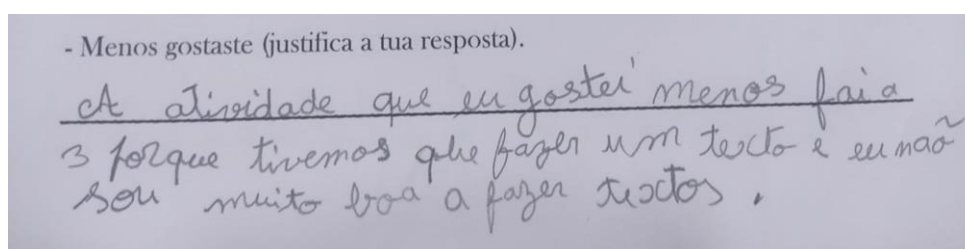 - Menos gostaste (justifica a tua resposta).
A atividade que eu gostei menos foi a
3 porque tivemos que fazer um texto e eu não
sou muito boa a fazer textos.